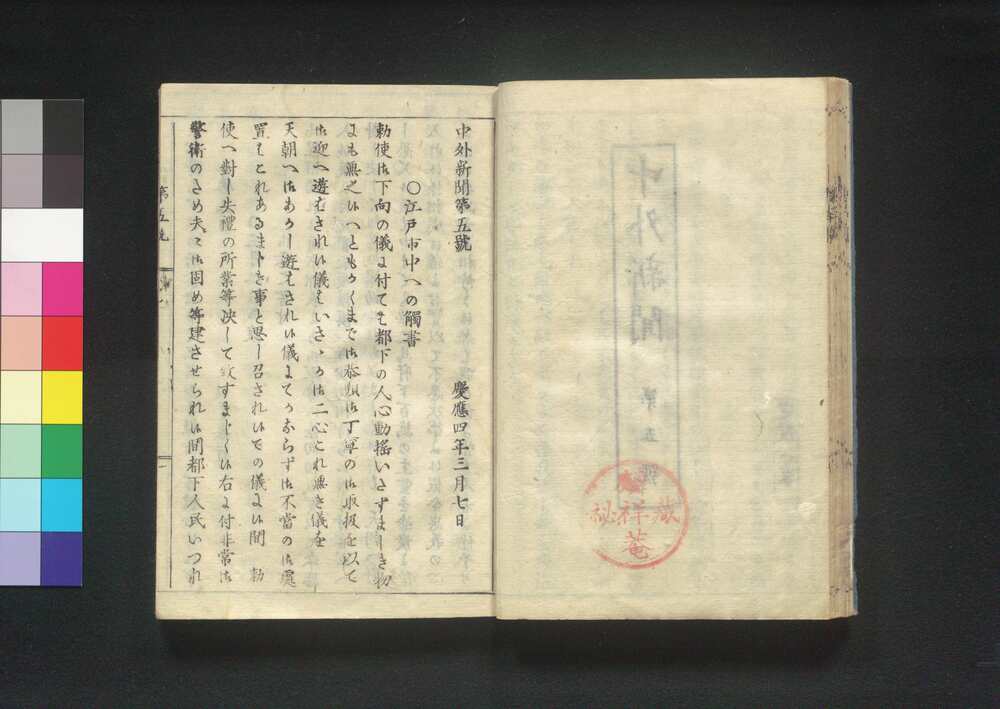 中外新聞
第五號
祕祥蔵
菴
中外新聞第五號　慶應四年三月七日
○江戸市中への觸書
勅使御下向の儀に付ても都下の人心動搖いたすまじき物
にも無之候へどもかくまで御恭順御丁寧の御取扱を以て
御迎へ遊ばされ候儀もいさゝか御二心これ無き儀を
天朝へ御あかし遊ばされ候儀にてかならず御不當の御處
置はこれあるまじき事と思し召され候ての儀に候間　勅
使へ對し失禮の所業等决して致すまじく候右に付非常御
警衛のため夫々御固め等建させられ候間都下人民いづれ
第五號